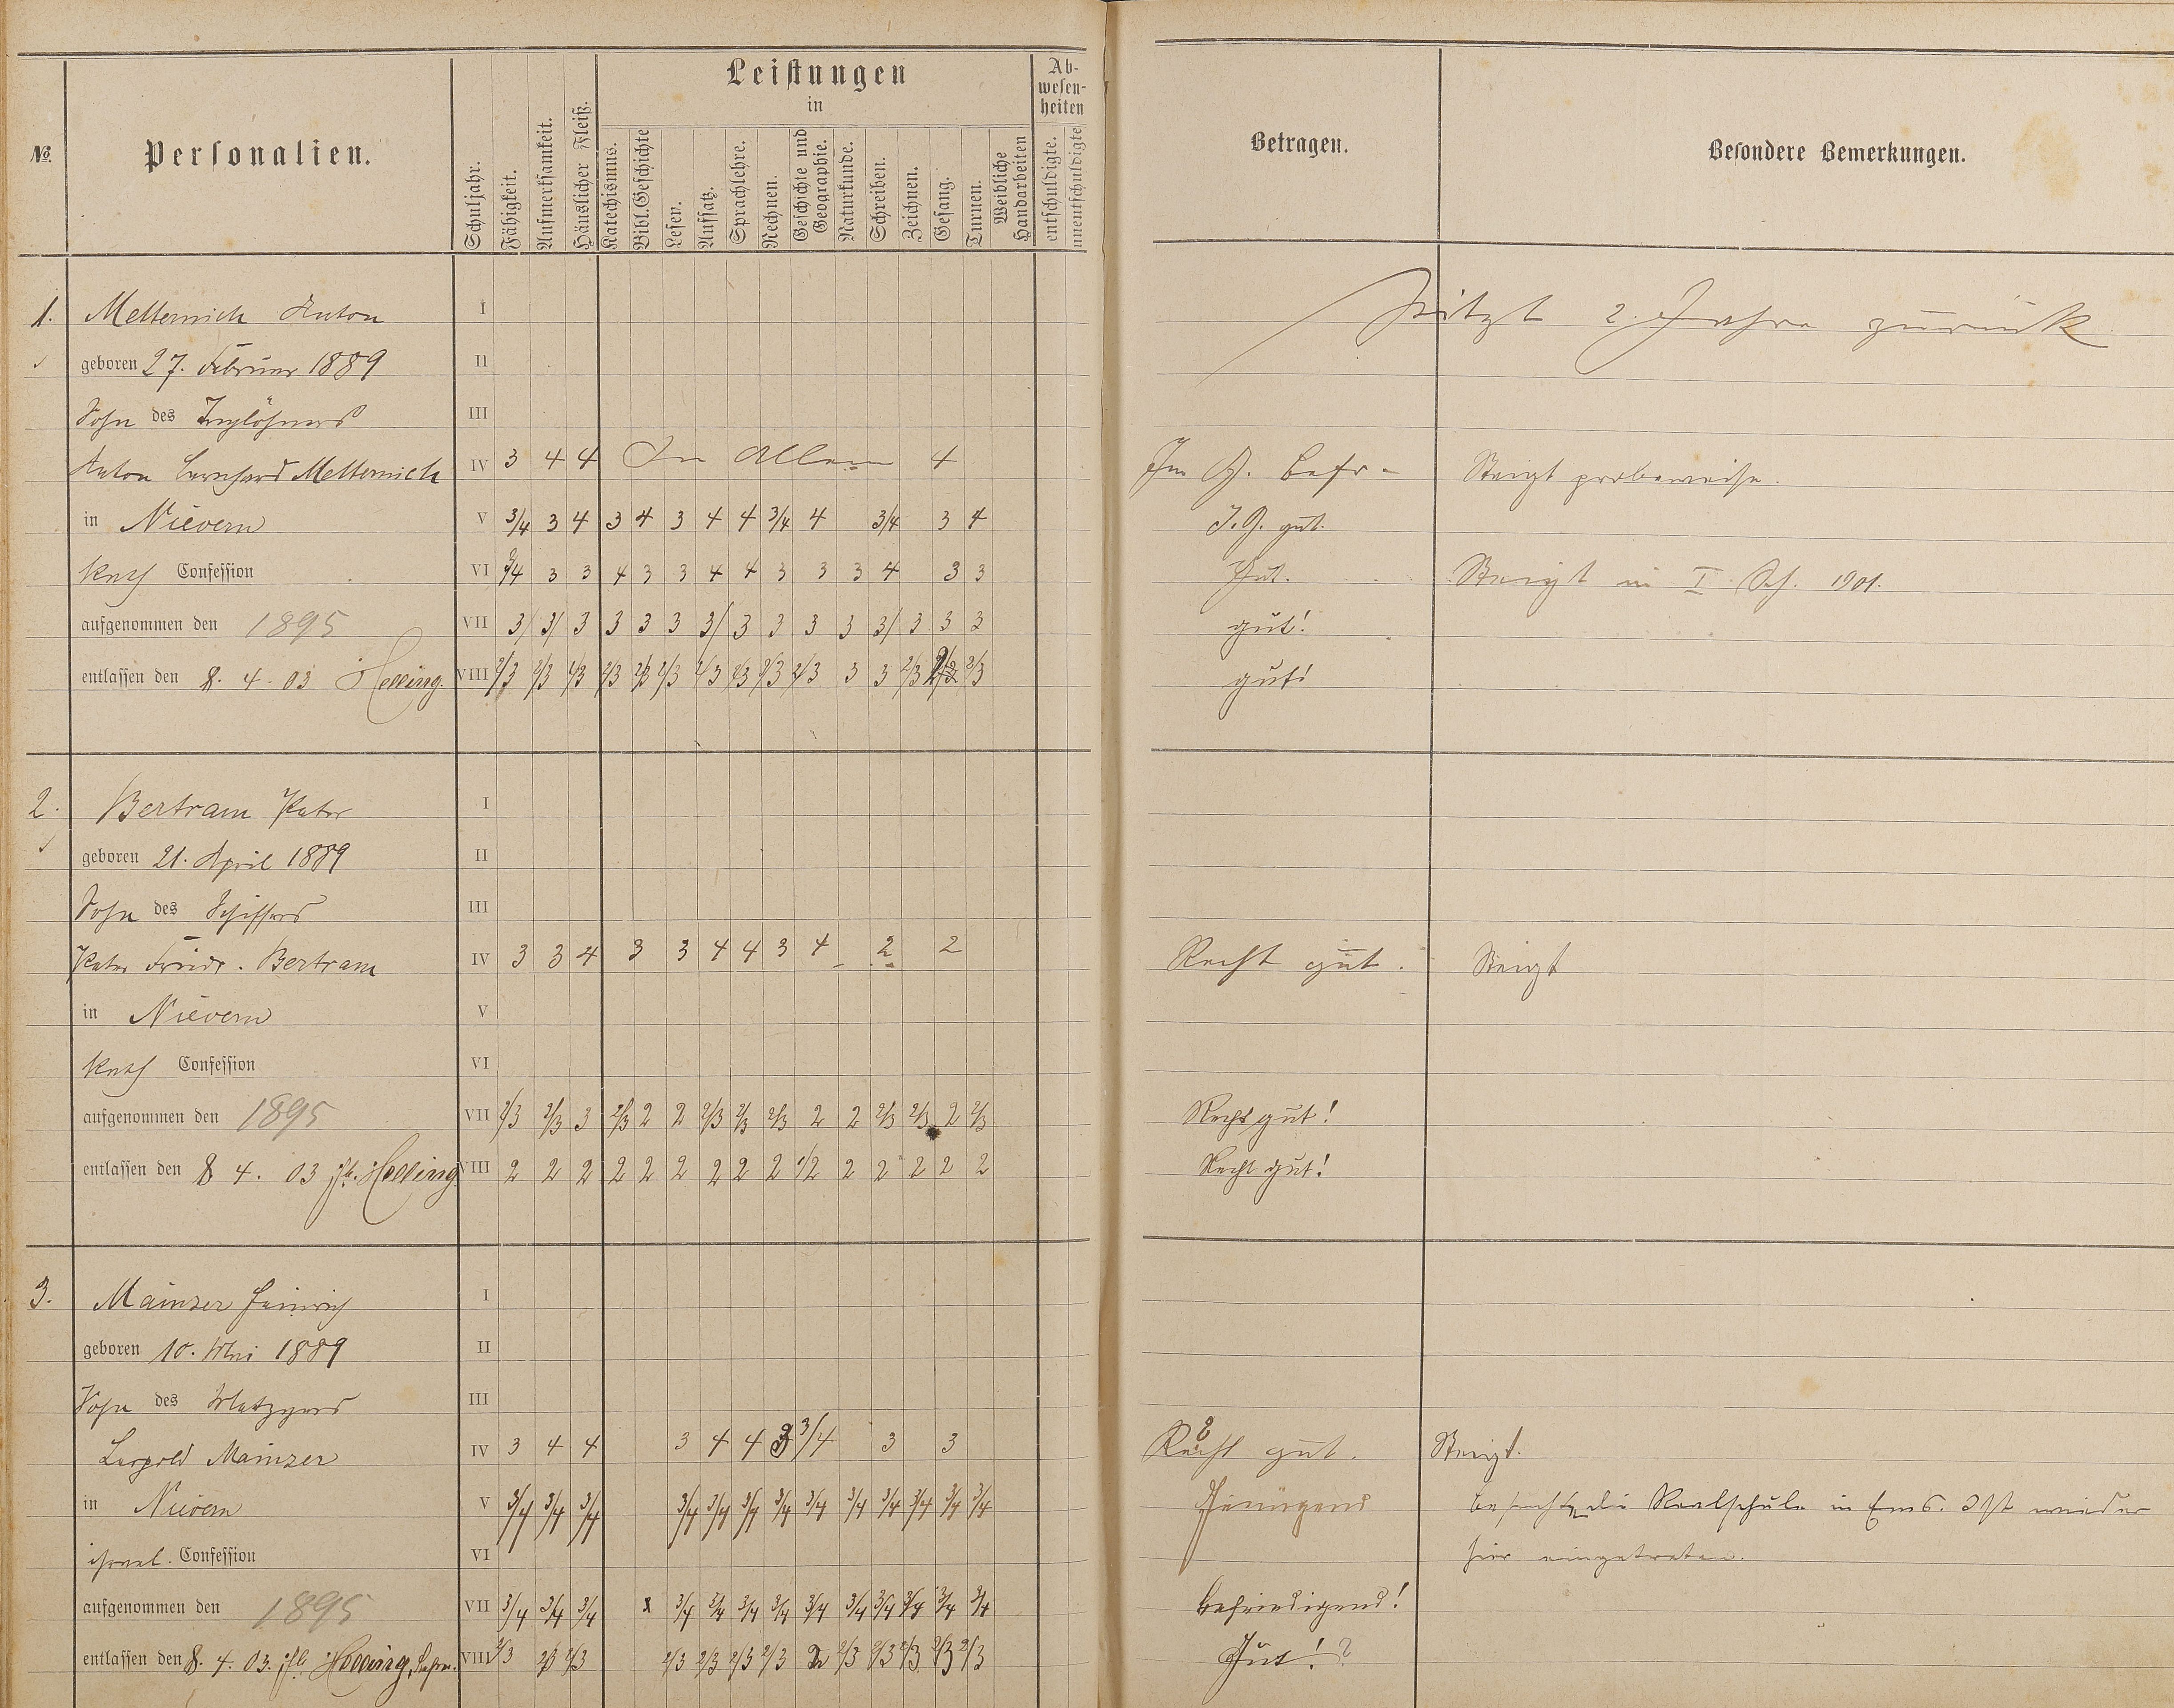 Leistungen
in
Ab-
wesen-
heiten
№.
Personalien.
Schuljahr.
Fähigkeit.
Aufmerksamkeit.
Häuslicher Fleiß.
Katechismus.
Bibl. Geschichte
Lesen.
Aufsatz.
Sprachlehre.
Rechnen.
Geschichte und
Geographie.
Naturkunde.
Schreiben.
Zeichnen.
Gesang.
Turnen.
Weibliche
Handarbeiten
entschuldigte.
unentschuldigte
Betragen.
Besondere Bemerkungen.
1. Metternich Anton I sitzt 2 Jahre zurück
geboren 27. Februar 1889 II
Sohn des Taglöhners III
Anton Bernhard Metternich IV 3 4 4 In Allem 4 Im G. befr. Steigt probeweise.
in Nievern V 3/4 3 4 3 4 3 4 4 3/4 4 3/4 3 4 I. G. gut.
Kath Confession VI 3/4 3 3 4 3 3 4 4 3 3 3 4 3 3 Gut. Steigt in I Sch. 1901.
aufgenommen den 1895 VII 3/ 3/ 3 3 3 3 3/ 3 3 3 3 3/ 3 3 3 gut!
entlassen den 8. 4. 03 Helling. VIII 2/3 2/3 2/3 2/3 2/3 2/3 2/3 2/3 2/3 2/3 3 3 2/3 2/3 gut!
2. Bertram Peter I
geboren 21. April 1889 II
Sohn des Schiffers III
Peter Friedr. Bertram IV 3 3 4 3 3 4 4 3 4 2 2 Recht gut. Steigt
in Nievern V
Kath Confession VI
aufgenommen den 1895 VII 2/3 2/3 3 2/3 2 2 2/3 2/3 2/3 2 2 2/3 2/3 2 2/3 Recht gut!
entlassen den 8 4. 03 Helling VIII 2 2 2 2 2 2 2 2 2 1/2 2 2 2 2 2 Recht gut!
3. Mainzer Heinrich I
geboren 10. Mai 1889 II
Sohn des Metzgers III
Leopold Mainzer IV 3 4 4 3 4 4 3 3/4 3 3 Recht gut. Steigt.
in Nievern V 3/4 3/4 3/4 3/4 3/4 3/4 3/4 3/4 3/4 3/4 3/4 3/4 3/4 Genügend besuchte die Realschule in Ems. Ist wieder
israel. Confession VI hier eingetreten.
aufgenommen den 1895 VII 3/4 3/4 3/4 x 3/4 3/4 3/4 3/4 3/4 3/4 3/4 3/4 3/4 3/4 befriedigend!
entlassen den 8. 4. 03. Helling, VIII 2/3 2/3 2/3 2/3 2/3 2/3 2/3 2 2/3 2/3 2/3 2/3 2/3 Gut! ?